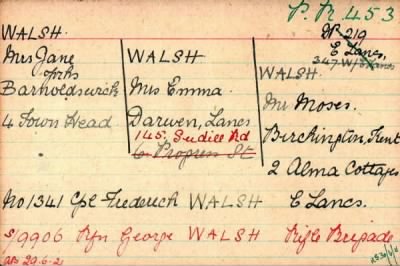 P.R. 453
WALSH.
Mrs Jane
Yorks
Barnoldswick
4 Town Head
WALSH
Mrs Emma.
Darwen, Lancs
145. Sudill Rd
6 Progress St
W. 219
E Lancs.
347 W/E Lancs
WALSH.
Mr Moses.
Birchington, Kent
2 Alma Cottages
No 1341 Cpl Frederick WALSH E Lancs.
S/9906 Rfn George WALSH Rifle Brigade
29.6.21